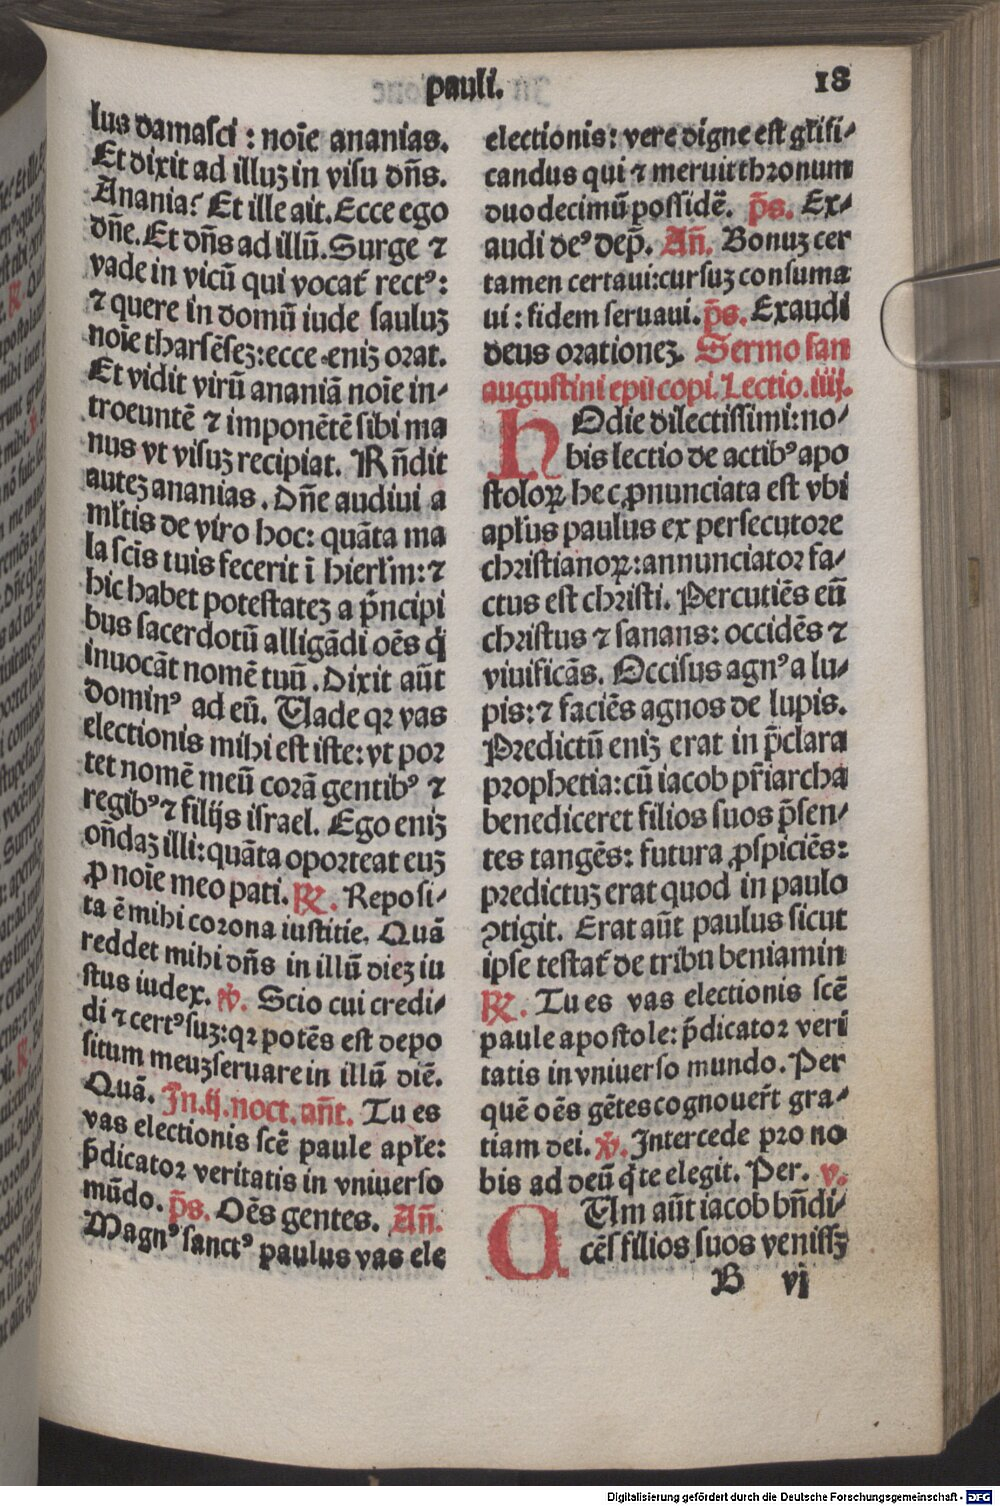 pauli.
18
lus damasci : noīe ananias.
Et dixit ad illuʒ in visu dn̄s.
Anania? Et ille ait. Ecce ego
dn̄e. Et dn̄s ad illū. Surge ⁊
vade in vicū qui vocat᷑ rectꝰ:
⁊ quere in domū iude sauluʒ
noīe tharsēseʒ: ecce eniʒ orat.
Et vidit virū ananiā noīe in-
troeuntē ⁊ imponētē sibi ma
nus vt visuʒ recipiat. Rn̄dit
auteʒ ananias. Dn̄e audiui a
ml̄tis de viro hoc: quāta ma
la scīs tuis fecerit ī hierl̄m: ⁊
hic habet potestateʒ a p̄ncipi
bus sacerdotū alligādi oēs q̄
inuocāt nomē tuū. Dixit aūt
dominꝰ ad eū. Vade qꝛ vas
electionis mihi est iste: vt por
tet nomē meū corā gentibꝰ ⁊
regibꝰ ⁊ filijs israel. Ego eniʒ
on̄daʒ illi: quāta oporteat euʒ
ꝓ noīe meo pati. ℟. Reposi-
ta ē mihi corona iustitie. Quā
reddet mihi dn̄s in illū dieʒ iu
stus iudex. ℣. Scio cui credi-
di ⁊ certꝰ suʒ: qꝛ potēs est depo
situm meuʒ seruare in illū diē.
Quā. Jn .ij. noct. an̄t. Tu es
vas electionis scē paule apl̄e:
p̄dicator veritatis in vniuerso
mūdo. p̄s. Oēs gentes. An̄.
Magnꝰ sanctꝰ paulus vas ele
electionis: vere digne est gl̄ifi-
candus qui ⁊ meruit thronum
duodecimū possidē. p̄s. Ex-
audi deꝰ dep̄. An̄. Bonuʒ cer
tamen certaui: cursuʒ consuma
ui: fidem seruaui. p̄s. Exaudi
deus orationeʒ. Sermo san
augustini epīi copi. Lectio. iiij.
HOdie dilectissimi: no-
bis lectio de actibꝰ apo
stoloꝝ hec ꝓnunciata est vbi
apl̄us paulus ex persecutore
christianoꝝ: annunciator fa-
ctus est christi. Percutiēs eū
christus ⁊ sanans: occidēs ⁊
viuificās. Occisus agnꝰ a lu-
pis: ⁊ faciēs agnos de lupis.
Predictū eniʒ erat in p̄clara
prophetia: cū iacob pr̄iarcha
benediceret filios suos p̄sen-
tes tangēs: futura ꝓspiciēs:
predictuʒ erat quod in paulo
ꝯtigit. Erat aūt paulus sicut
ipse testat᷑ de tribu beniamin
℟. Tu es vas electionis scē
paule apostole: p̄dicator veri
tatis in vniuerso mundo. Per
quē oēs gētes cognouer̄t gra-
tiam dei. ℣. Intercede pro no
bis ad deū q̄ te elegit. Per. v.
CUm aūt iacob bn̄di-
cēs filios suos venissʒ
B vj
Digitalisierung gefördert durch die Deutsche Forschungsgemeinschaft - DFG